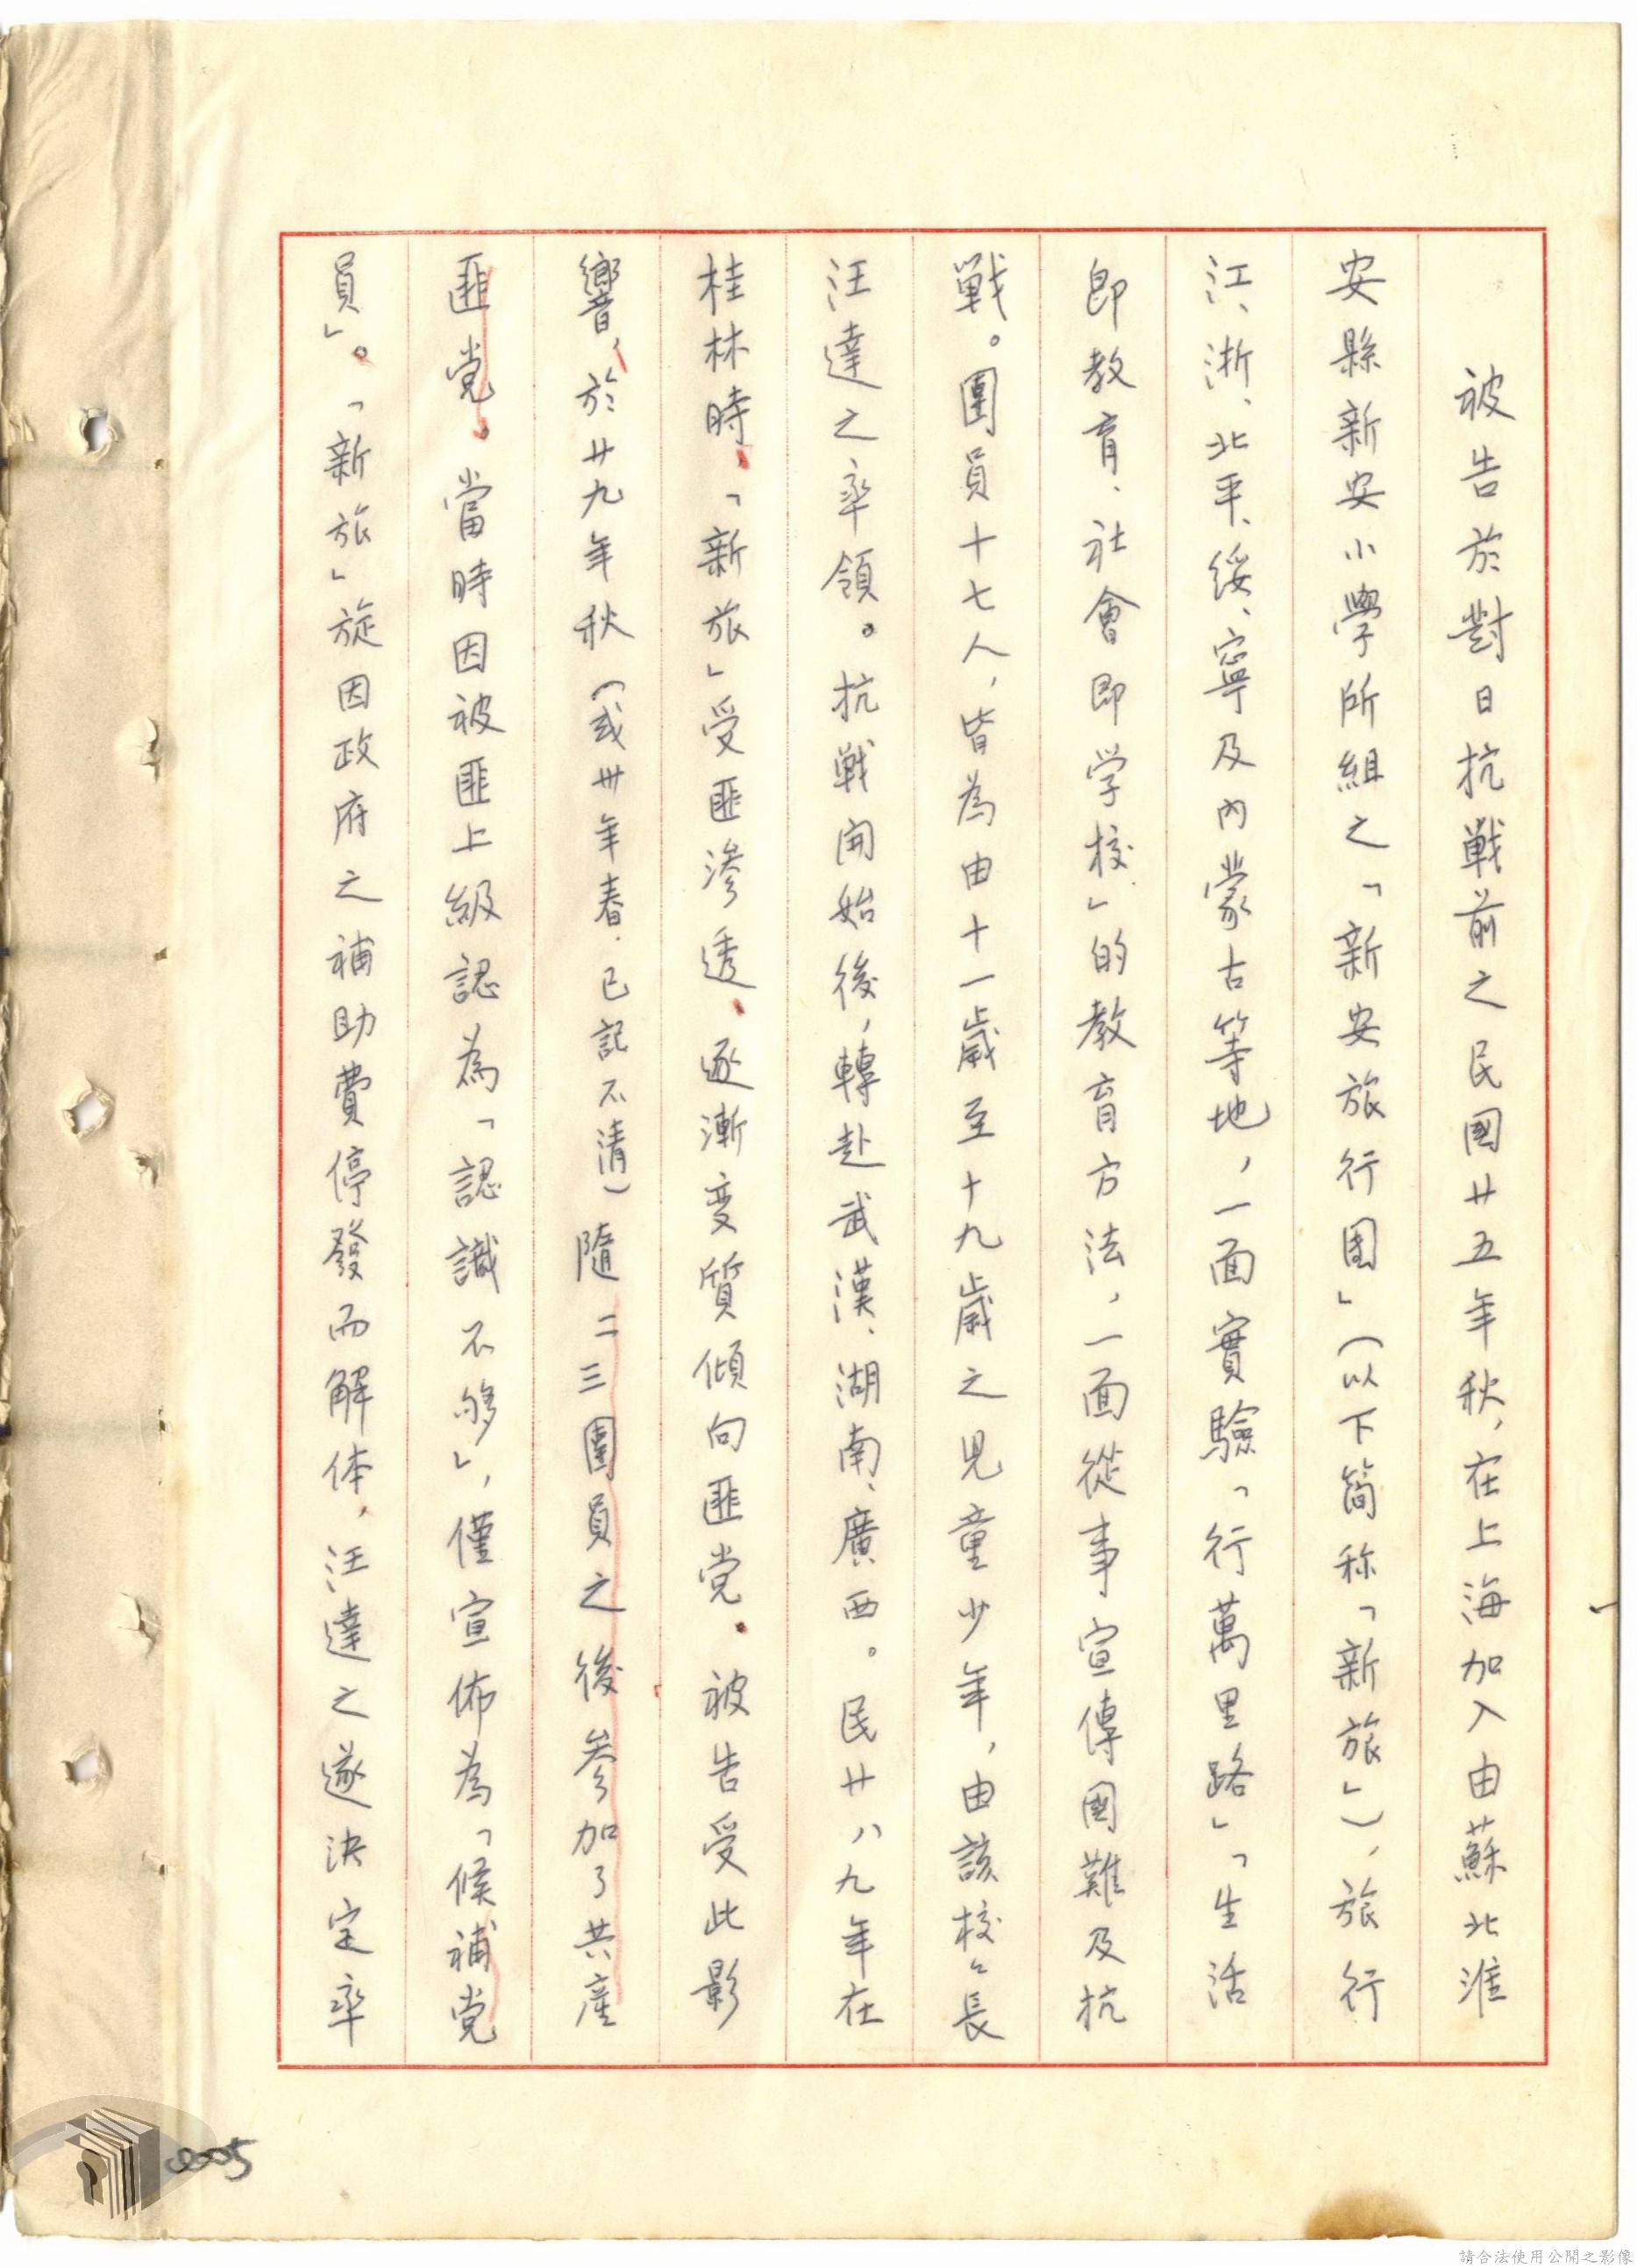 被告於對日抗戰前之民國廿五年秋，在上海加入由蘇北淮
安縣新安小學所組之「新安旅行團」（以下简称「新旅」），旅行
江、浙、北平、綏、寧及內蒙古等地，一面實驗「行萬里路」「生活
即教育、社會即学校」的教育方法，一面從事宣傳國難及抗
戰。團員十七人，皆為由十一歲至十九歲之児童少年，由該校々長
汪達之率領。抗戰開始後，轉赴武漢、湖南、廣西。民廿八九年在
桂林時，「新旅」受匪滲透，逐漸变質傾向匪党。被告受此影
響，於廿九年秋（或卅年春．已記不清）隨二三團員之後參加了共產
匪党。當時因被匪上級認為「認識不够」，僅宣佈為「候補党
員」。「新旅」旋因政府之補助費停發而解体，汪達之遂決定率
0005
請合法使用公開之影像